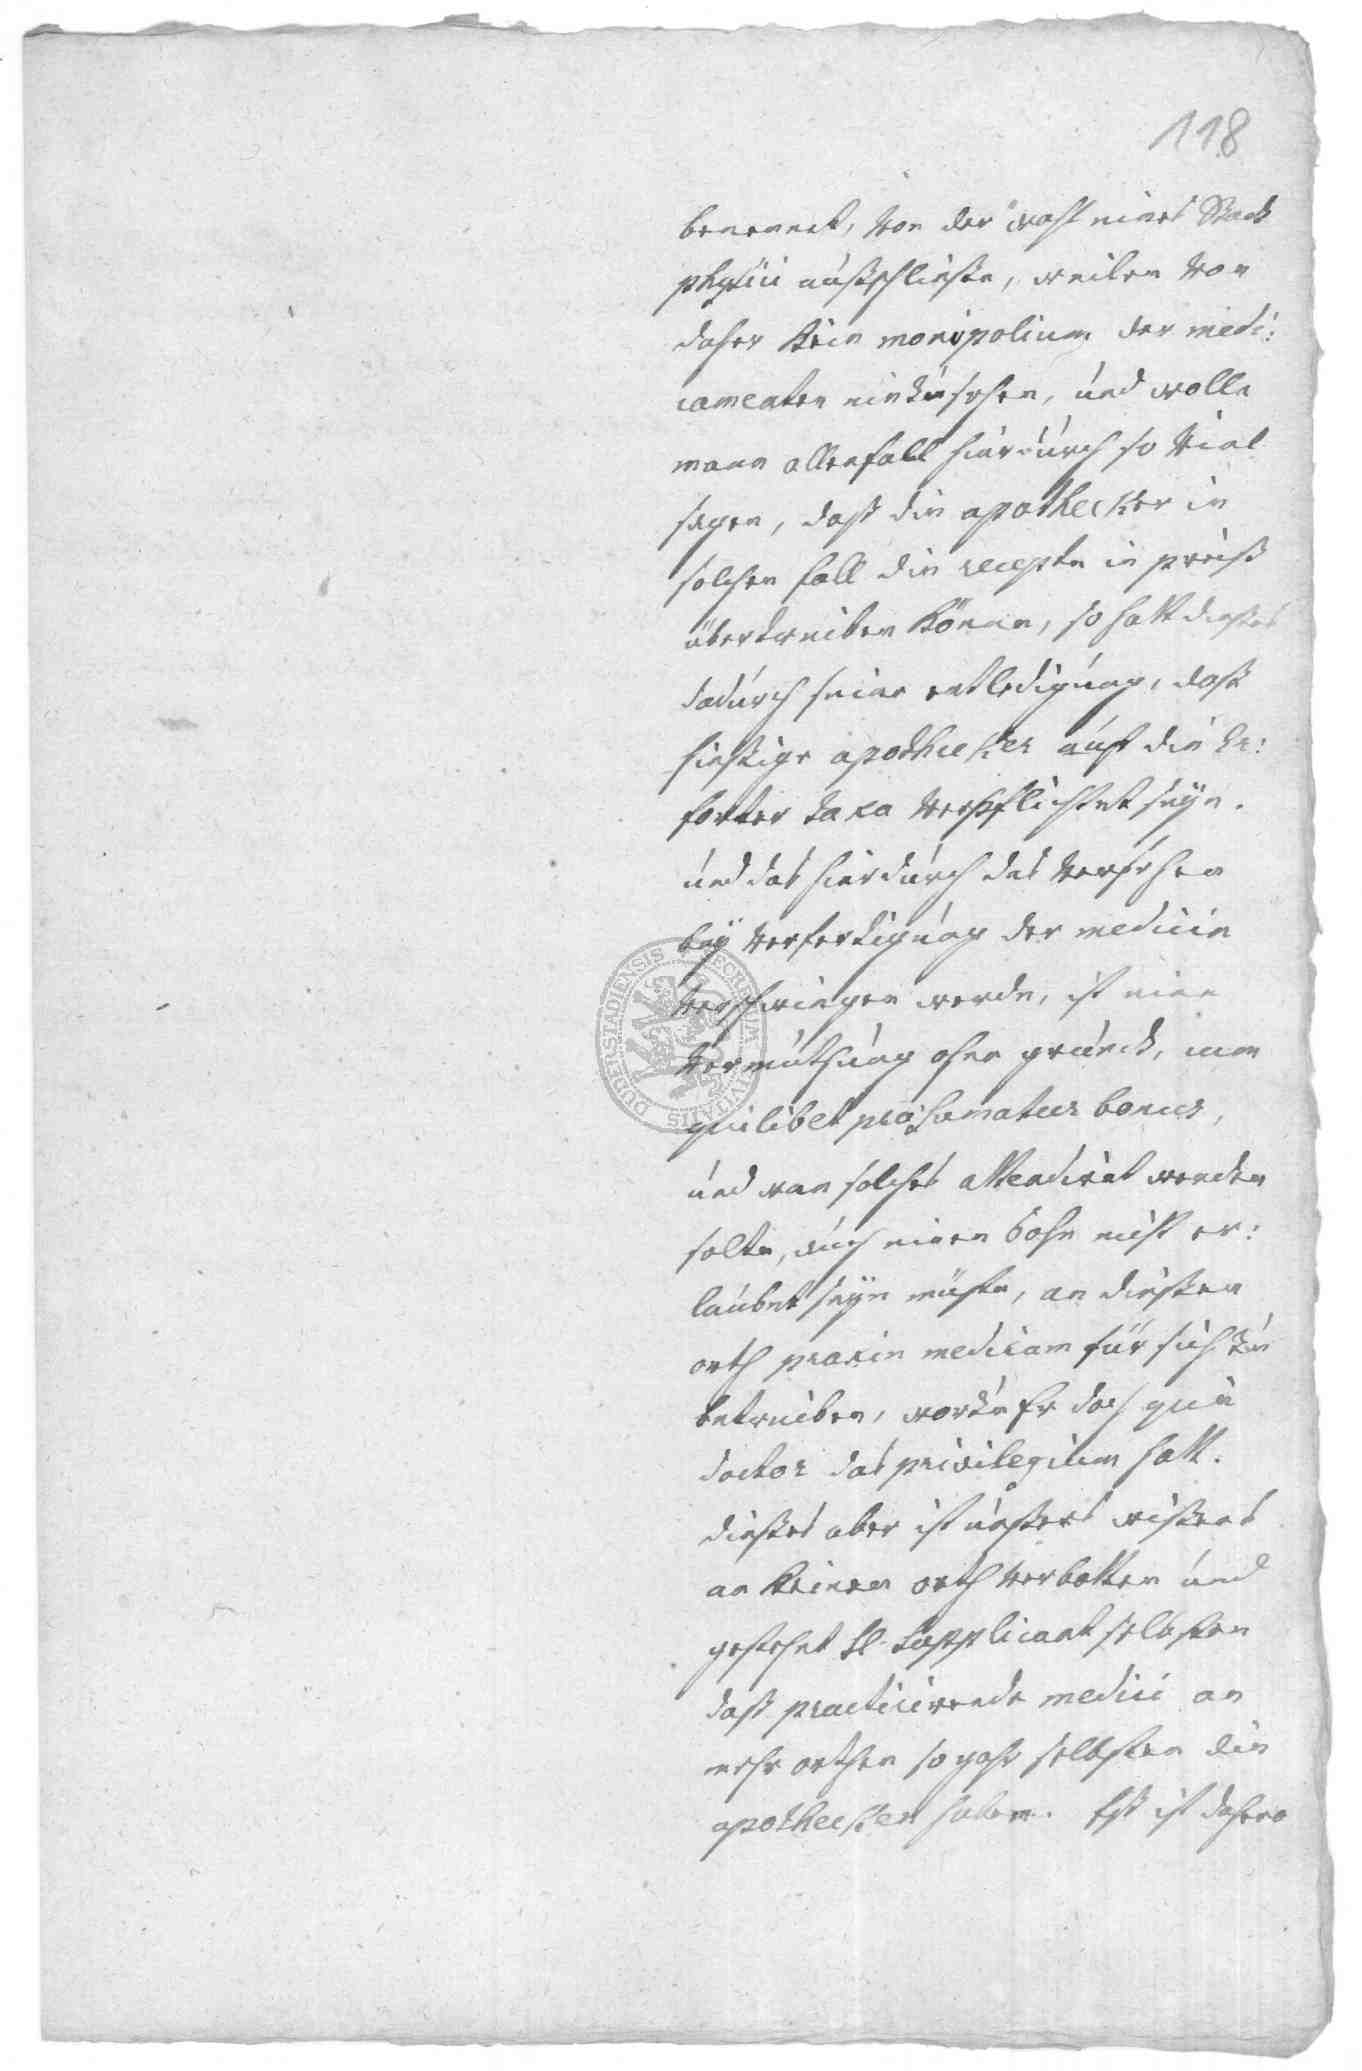 118
benennet, von der wahl eines Stadt
physici ausschließe, weilen von
daher kein monopolium der medi:
camenten einzusehen, und wolle
mann allenfalls hierdurch so viel
sagen, daß die apothecker in
solchen fall die recepte in preiß
übertreiben könne, so hatt dießes
dadurch seine entledigung, daß
hießige apothecker auf die Er:
forter taxa verpflichtet seyn.
und das hierdurch das versehen
bey verfertigung der medicin
verschwiegen werde, ist eine
vermuthung ohne grundt, nam
quilibet præsumatur bonus,
und wan solches attendiret werden
solte, auch einen Sohn nicht er:
laubet seyn müste, an dießem
orth praxin medicam für sich zu
betreiben, worzu Er doch qua
doctor das privilegium hatt.
dießes aber ist unßers wißens
an keinem orth verbotten und
gestehet H. Supplicant selbsten
daß practicirende medici an
mehr orthen so gahr selbsten die
apothecken haben. Eß ist dahero
DUDERSTADIENSIS SECRETUM CIVITATIS